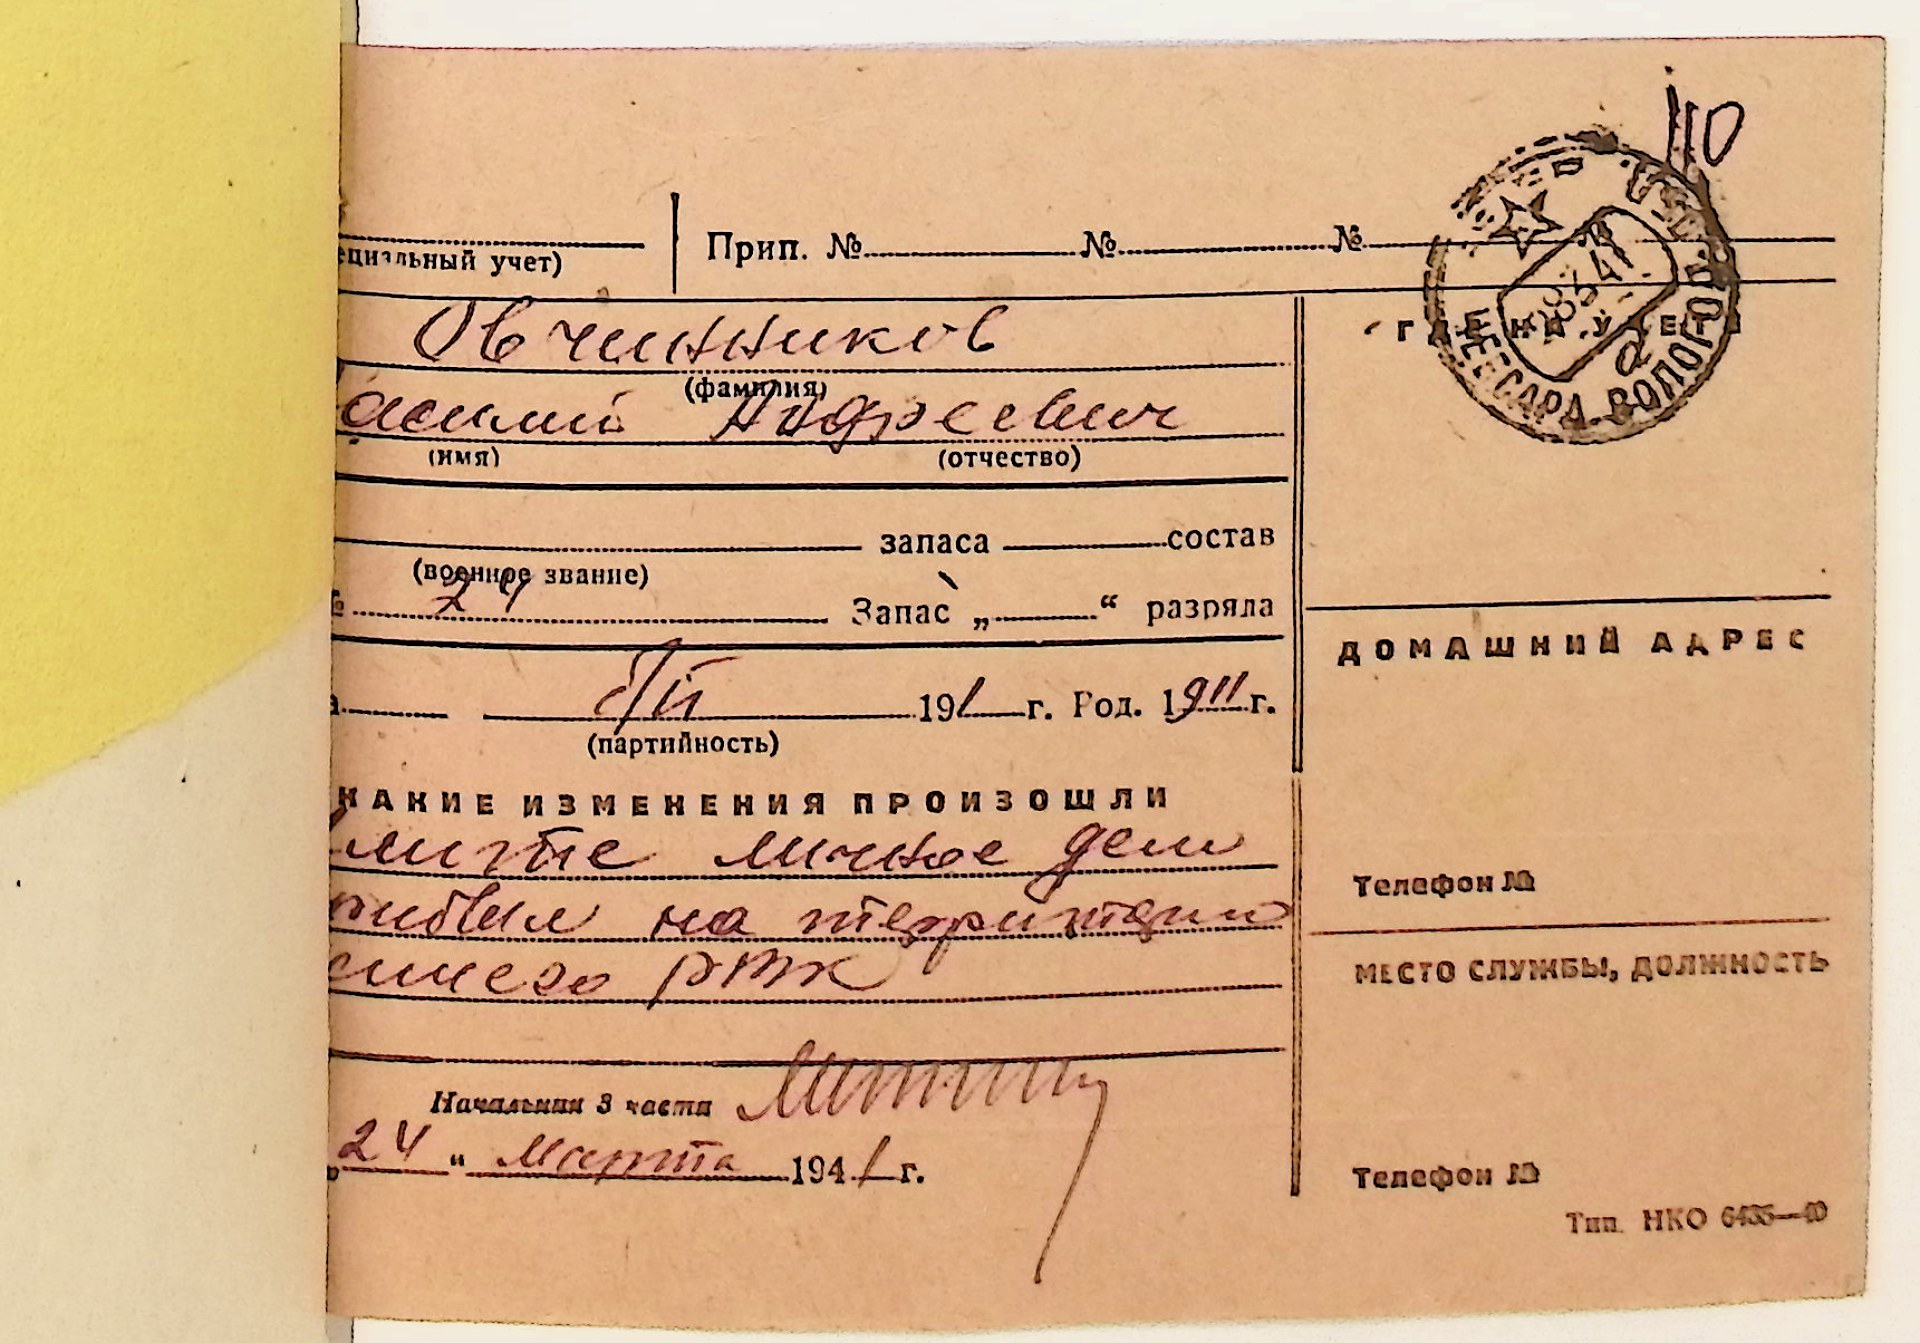 110
ециальный учет)
Прип. № № №
Овчинников
(фамилия)
асилий Андреевич
(имя) (отчество)
запаса состав
(военное звание)
№ 24 Запас „ “ разряда
б/п 191 г. Род. 1911 г.
(партийность)
КАКИЕ ИЗМЕНЕНИЯ ПРОИЗОШЛИ
личное дело
рибыл на территорию
РВК
Начальник 3 части
„24“ Марта 1941 г.
ГДЕ НА УЧЕТЕ
ДОМАШНИЙ АДРЕС
Телефон №
МЕСТО СЛУЖБЫ, ДОЛЖНОСТЬ
Телефон №
Тип. НКО 6435—40